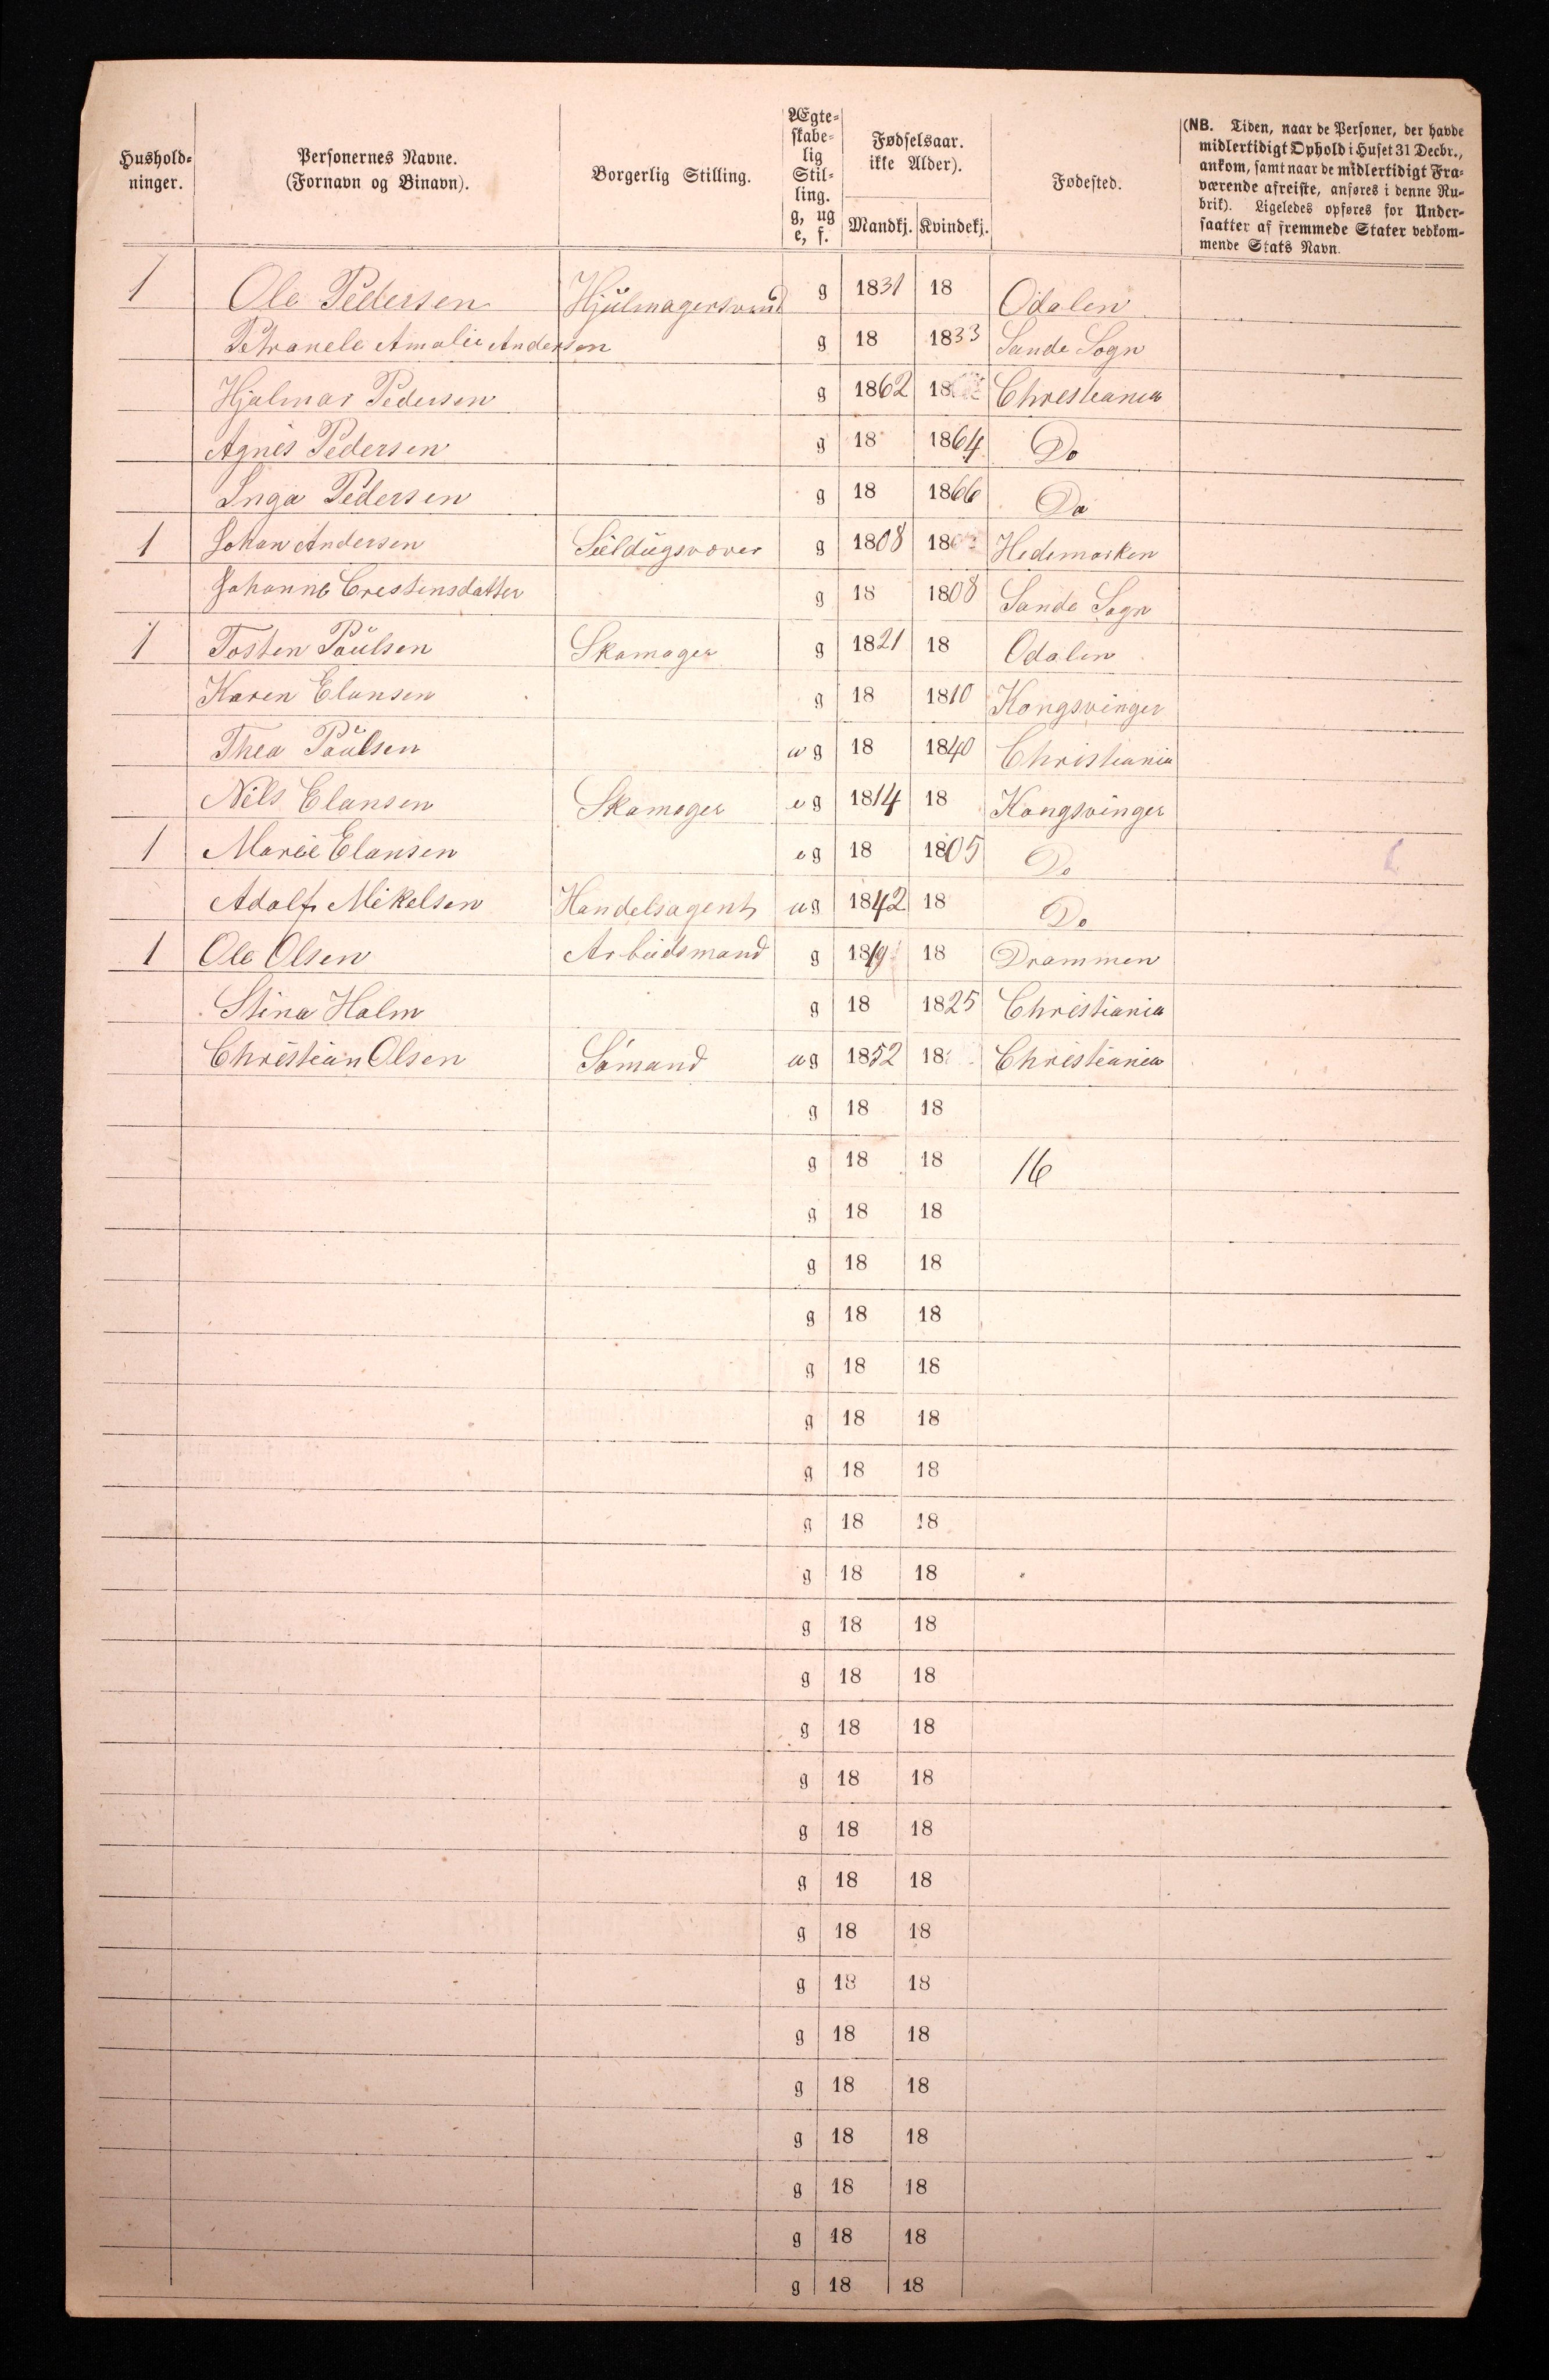 Hushold-
ninger.
Personernes Navne.
(Fornavn og Binavn).
Borgerlig Stilling.
Ægte-
skabe-
lig
Stil-
ling.
g, ug
e, f.
Fødselsaar.
ikke Alder).
Mandkj. Kvindekj.
Fødested.
(NB. Tiden, naar de Personer, der havde
midlertidigt Ophold i Huset 31 Decbr.,
ankom, samt naar de midlertidigt Fra-
værende afreiste, anføres i denne Ru-
brik). Ligeledes opføres for Under-
saatter af fremmede Stater vedkom-
mende Stats Navn.
1 Ole Pedersen g 1831 18 Odalen
Petranele Amalie Andersen g 18 1833 Sande Sogn
Hjalmar Pedersen g 1862 18 Christiania
Agnes Pedersen g 18 1864 Do
Inga Pedersen g 18 1866 Do
1 Johan Andersen Seildugsvæver g 1808 18 Hedemarken
Johanne Crestensdatter g 18 1808 Sande Sogn
1 Tosten Paulsen Skomager g 1821 18 Odalen
Karen Elansen g 18 1810 Kongsvinger
Thea Paulsen ug 18 1840 Christiania
Nils Elansen Skomager eg 1814 18 Kongsvinger
1 Marie Elansen eg 18 1805 Do
Adolf Mikelsen Handelsagent ug 1842 18 Do
1 Ole Olsen Arbeidsmand g 1819 18 Drammen
Stina Holm g 18 1825 Christiania
Christian Olsen Sømand ug 1852 18 Christiania
g 18 18
g 18 18 16
g 18 18
g 18 18
g 18 18
g 18 18
g 18 18
g 18 18
g 18 18
g 18 18
g 18 18
g 18 18
g 18 18
g 18 18
g 18 18
g 18 18
g 18 18
g 18 18
g 18 18
g 18 18
g 18 18
g 18 18
g 18 18
g 18 18